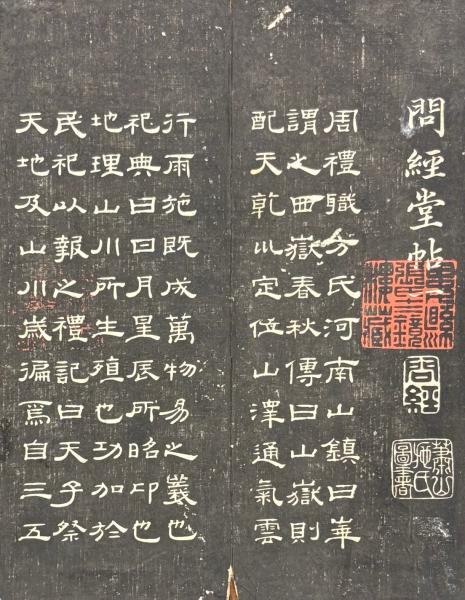 問經堂帖
問經
蕭山施氏圖書
周禮職方氏河南山鎮曰華
謂之西嶽春秋傳曰山嶽則
配天乾以定位山澤通氣雲
行雨施既成萬物易之義也
祀典曰日月星辰所昭卬也
地理山川所生殖也功加於
民祀以報之禮記曰天子祭
天地及山川歲徧焉自三五